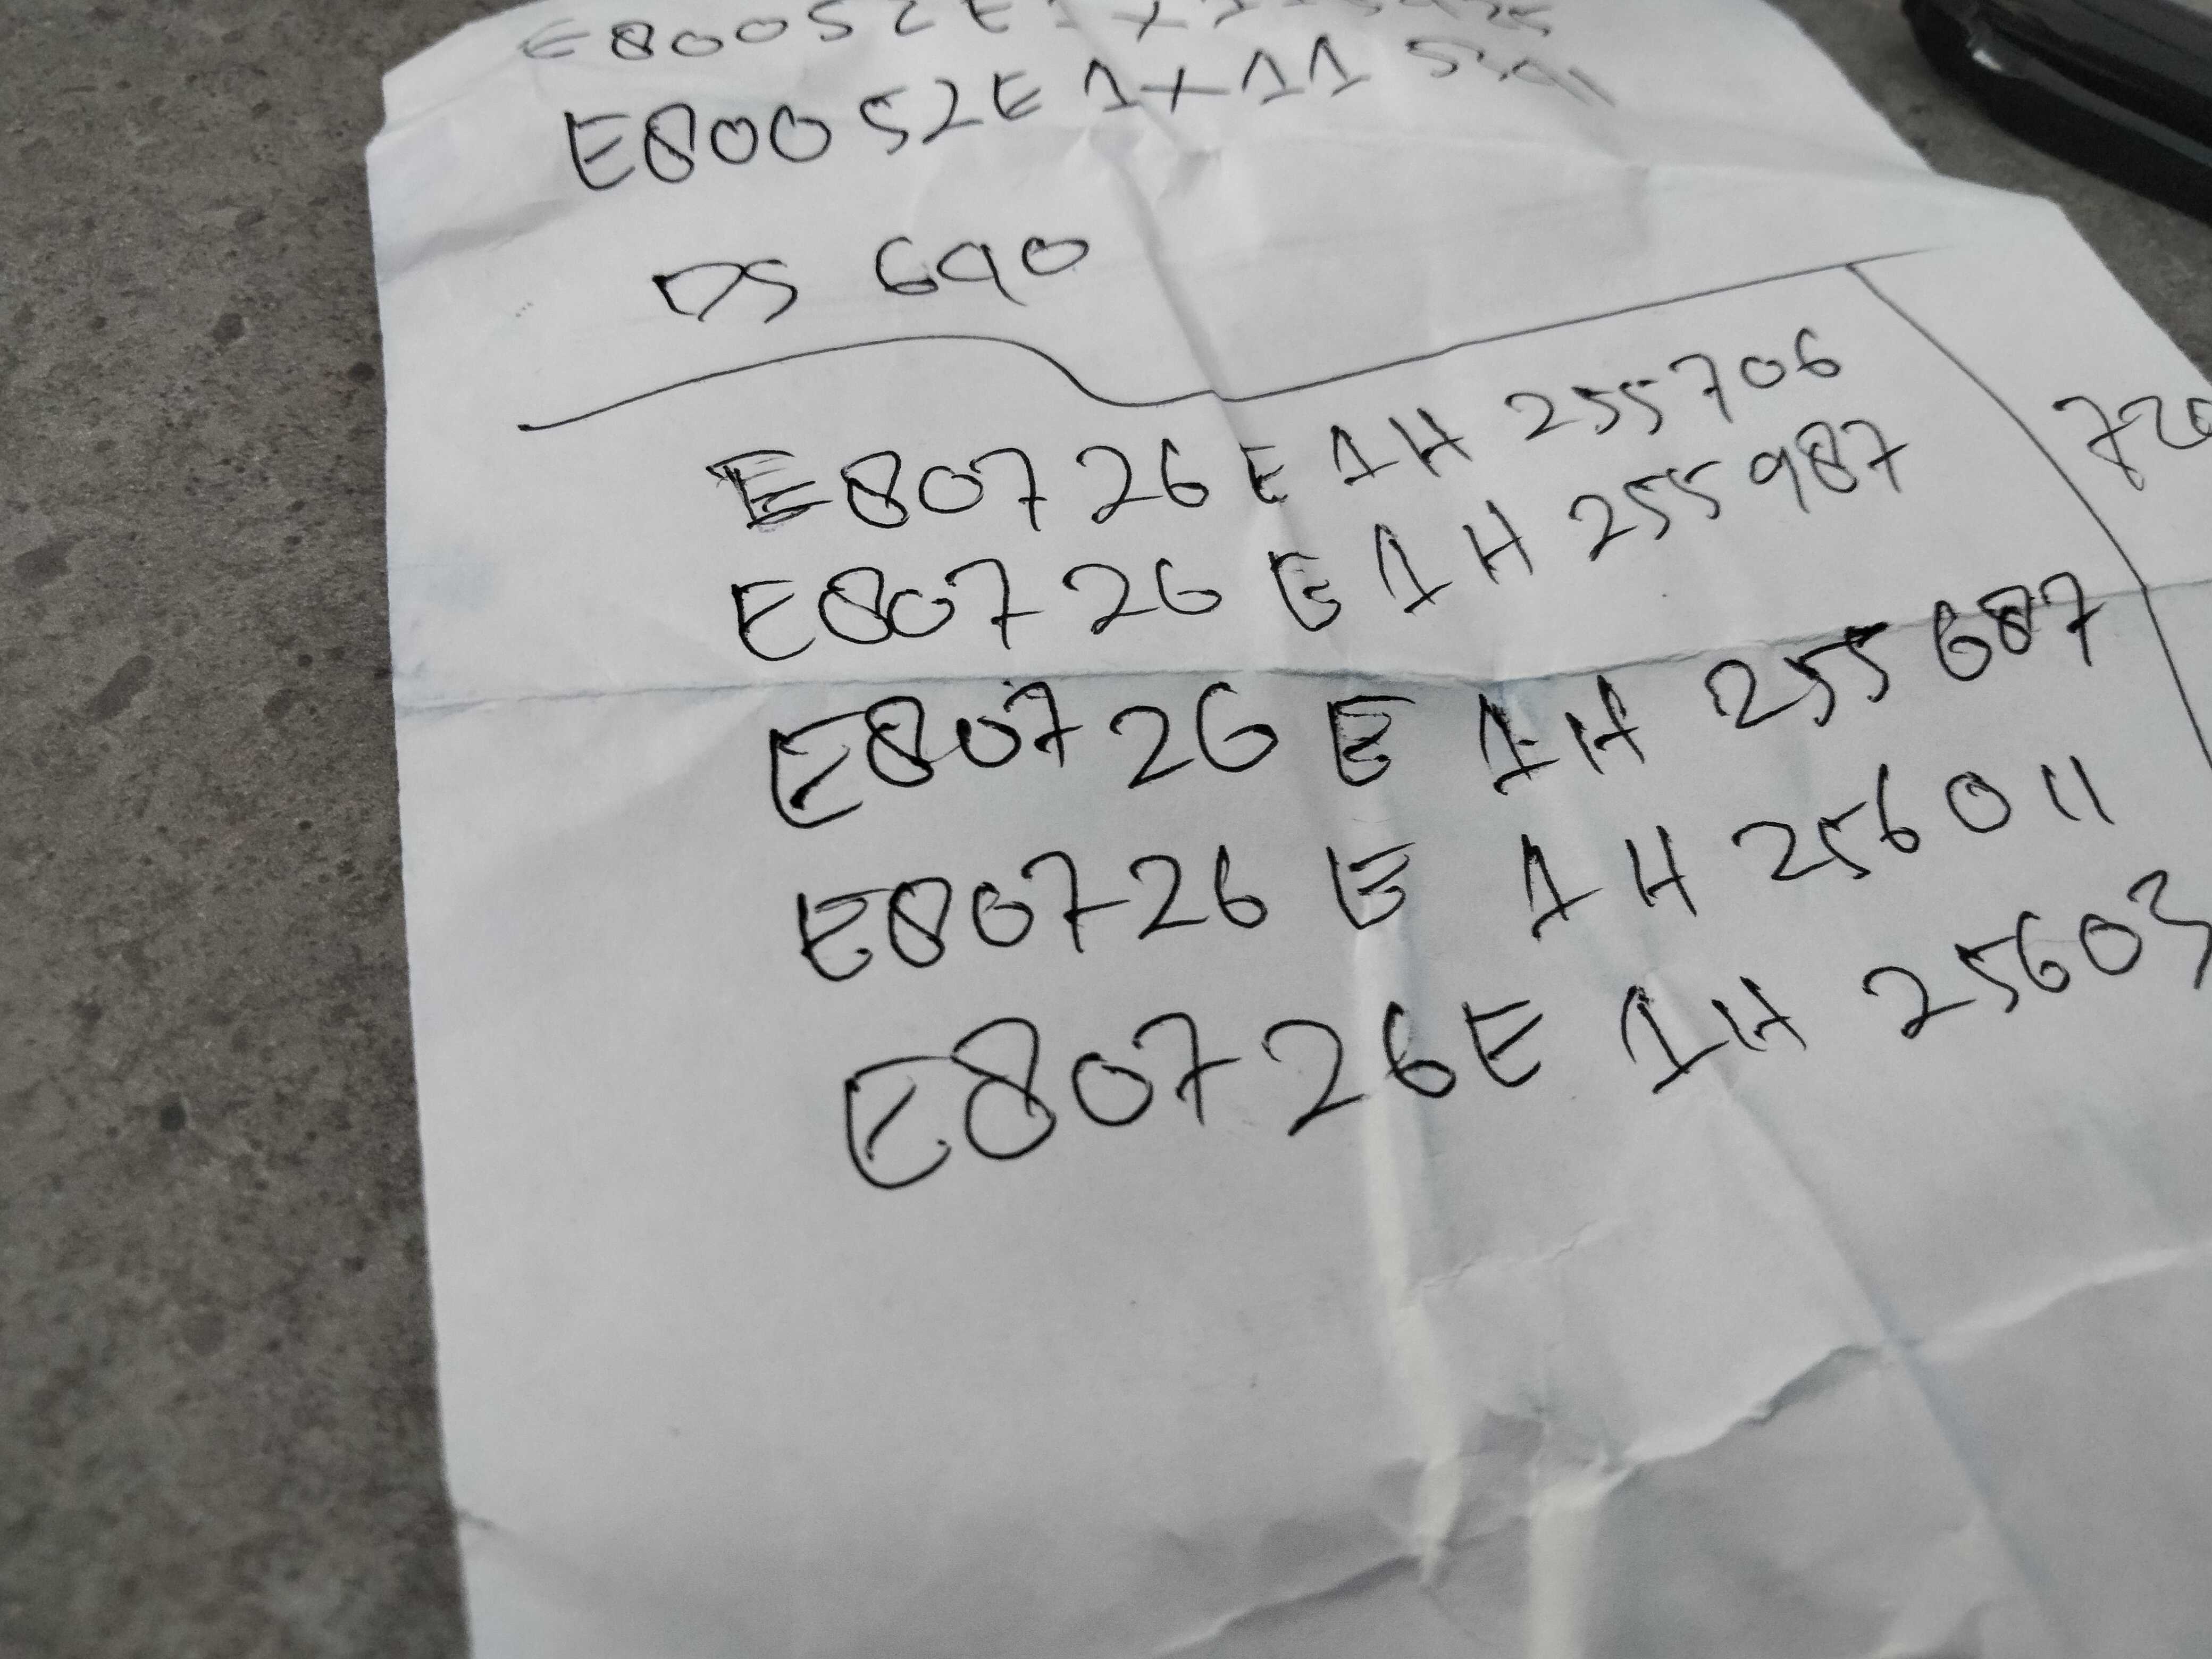 E80052E
E80052E1X11
DS 690
E80726E1H255706
720
E80726E1H255987
E80726E1H255687
E80726E1H256011
E80726E1H25603